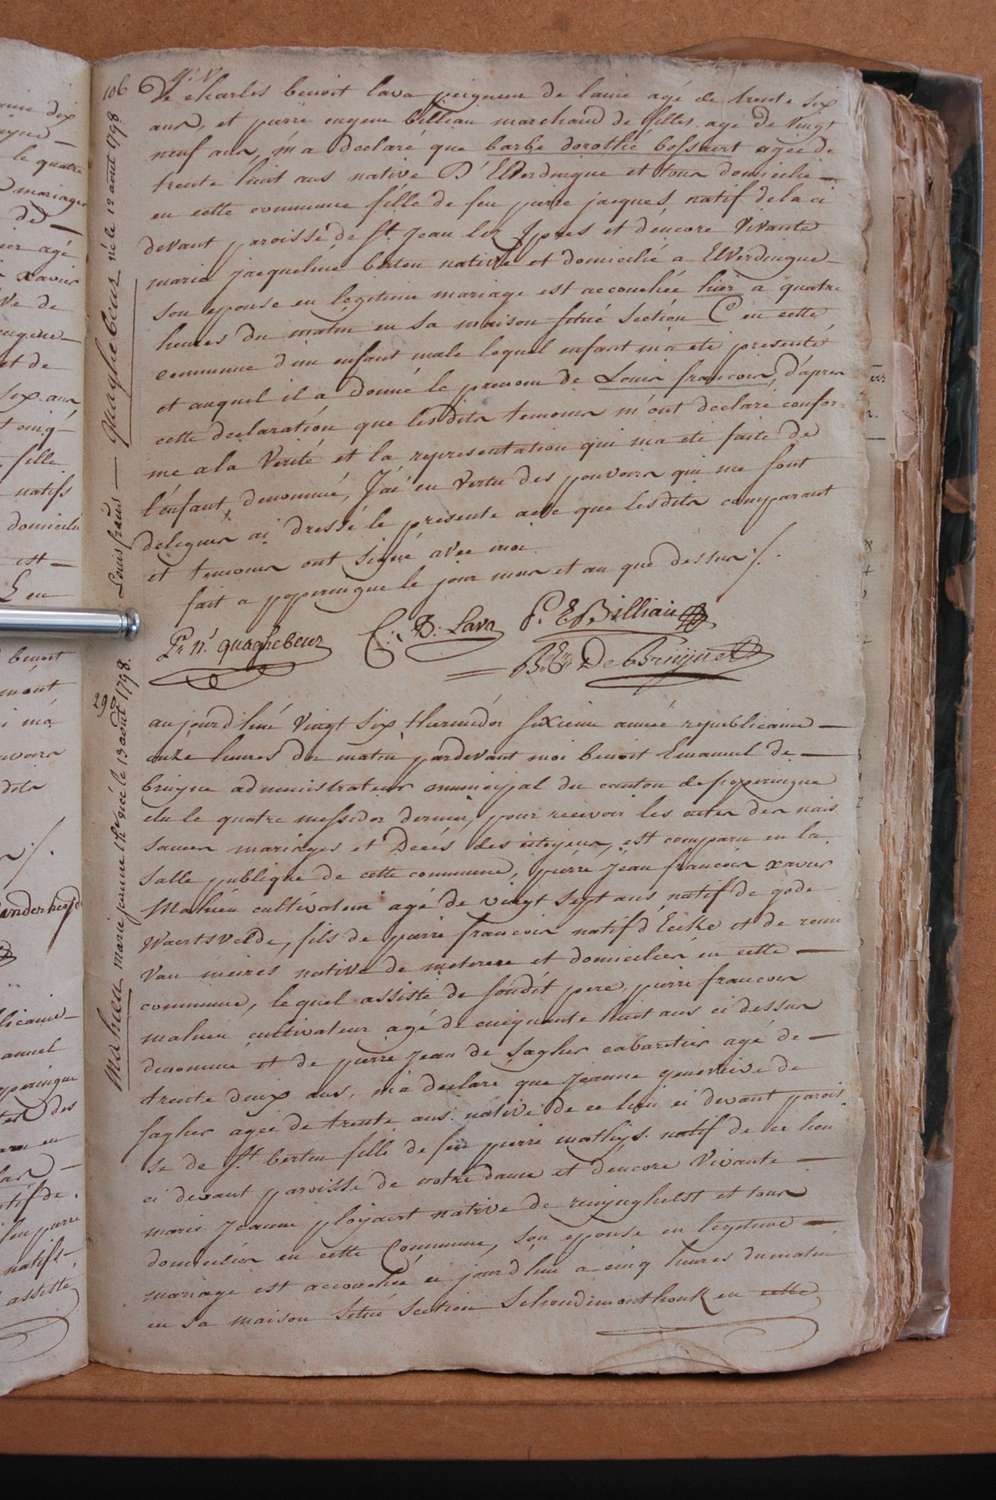 106
De Charles benoit Lava peigneur de laine agé de trente six
ans, et pierre eugene billiau marchand de filles agé de vingt
neuf ans, m'a declaré que barbe dorothée bossaert agée de
trente huit ans native D'Elverdingue et tous domiciliés
en cette commune fille de feu pierre jacques natif de la ci
devant paroisse de St. Jean lez Ypres et d'encore vivante
marie jacqueline berten native et domicilié a Elverdingue
son epouse en legitime mariage est accouchée hier à quatre
heures du matin en sa maison situé section C en cette
commune d'un enfant male lequel enfant m'a eté presenté
et auquel il a donné le prenom de Louis francois, d'apres
cette declaration que lesdits temoins m'ont declaré confor-
me a la verité et la representation qui m'a eté faite de
l'enfant denommé, J'ai en vertu des pouvoirs qui me sont
delegués ai dressé le presente acte que lesdits comparant
et temoins ont signé avec moi
fait a poperingue le jour mois et an que dessus /.
Pr. n. quaghebeur C: B: Lava P. E Billiau
B. E. De Bruyne
aujourd'hui vingt six thermidor sixieme année republicaine
onze heures du matin pardevant moi benoit Emanuel de
bruyne administrateur municipal du canton de poperingue
elu le quatre messidor dernier, pour recevoir les actes des nais
sances mariages et Decés des citoyens, est comparu en la
salle publique de cette commune, pierre jean francois xavier
Mahieu cultivateur agé de vingt sept ans natif de gode
Waertsvelde, fils de pierre francois natif d'Eecke et de
van meires native de meteren et domiciliés en cette
commune, lequel assisté de soudit pere pierre francois
mahieu cultivateur agé de cinquante huit ans ci dessus
denommé et de pierre jean de sagher cabaretier agé de
trente deux ans, m'a declaré que jeanne genevieve de
sagher agée de trente ans native de ce lieu ci devant parois
se de St. bertin fille de feu pierre mathys natif de ce lieu
ci devant paroisse de notre dame et d'encore vivante
marie jeanne ployaert native de renynghelst et tous
domiciliés en cette commune, son epouse en legitime
mariage est accouchée ce jourd'hui a cinq heures du matin
en sa maison situé section Schoudemonthouk en cette
Quaghebeur né le 12 août 1798
Louis franc̃s
Mahieu marie jeanne née le 13 août 1798.